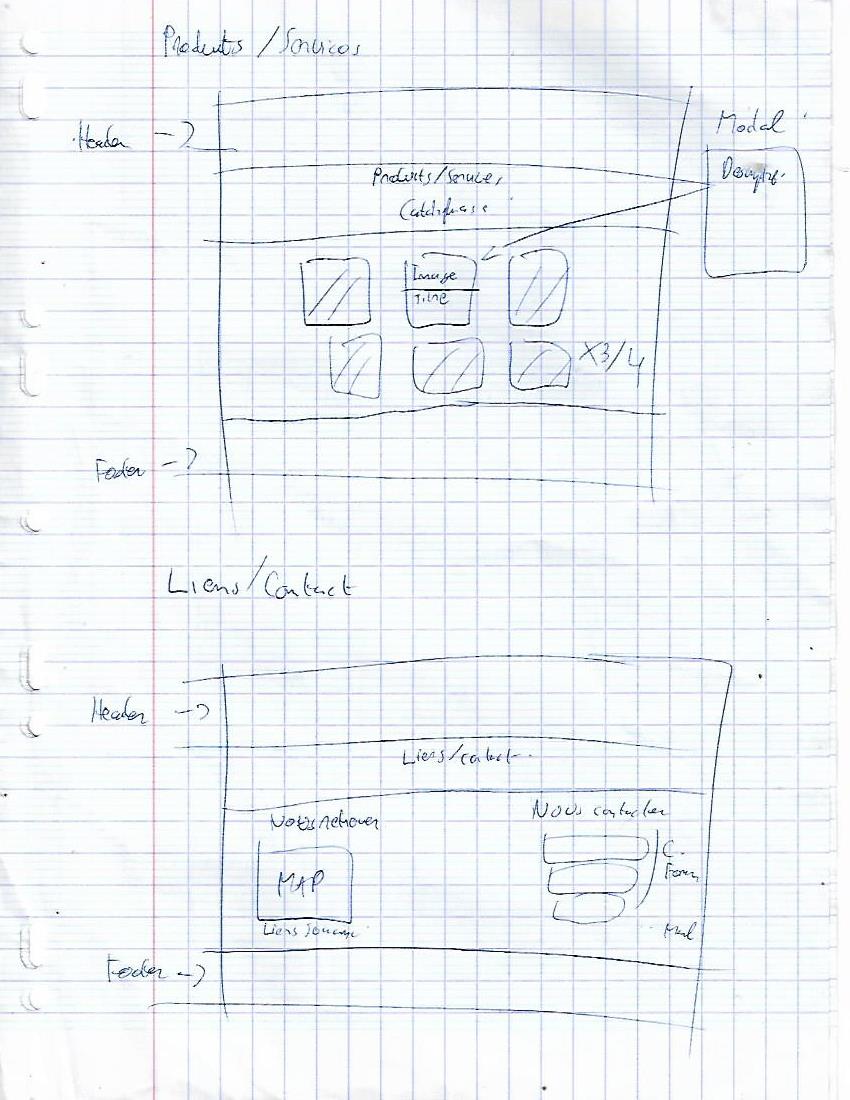 Produits / Services
Header ->
Modal
Descriptif.
Produits/Services
Catchphrase
Image
Titre
X3/4
Footer ->
Liens/Contact
Header ->
Liens/contact
Nous retrouver
Nous contacter
MAP
C.
Form
Liens
Mail
Footer ->